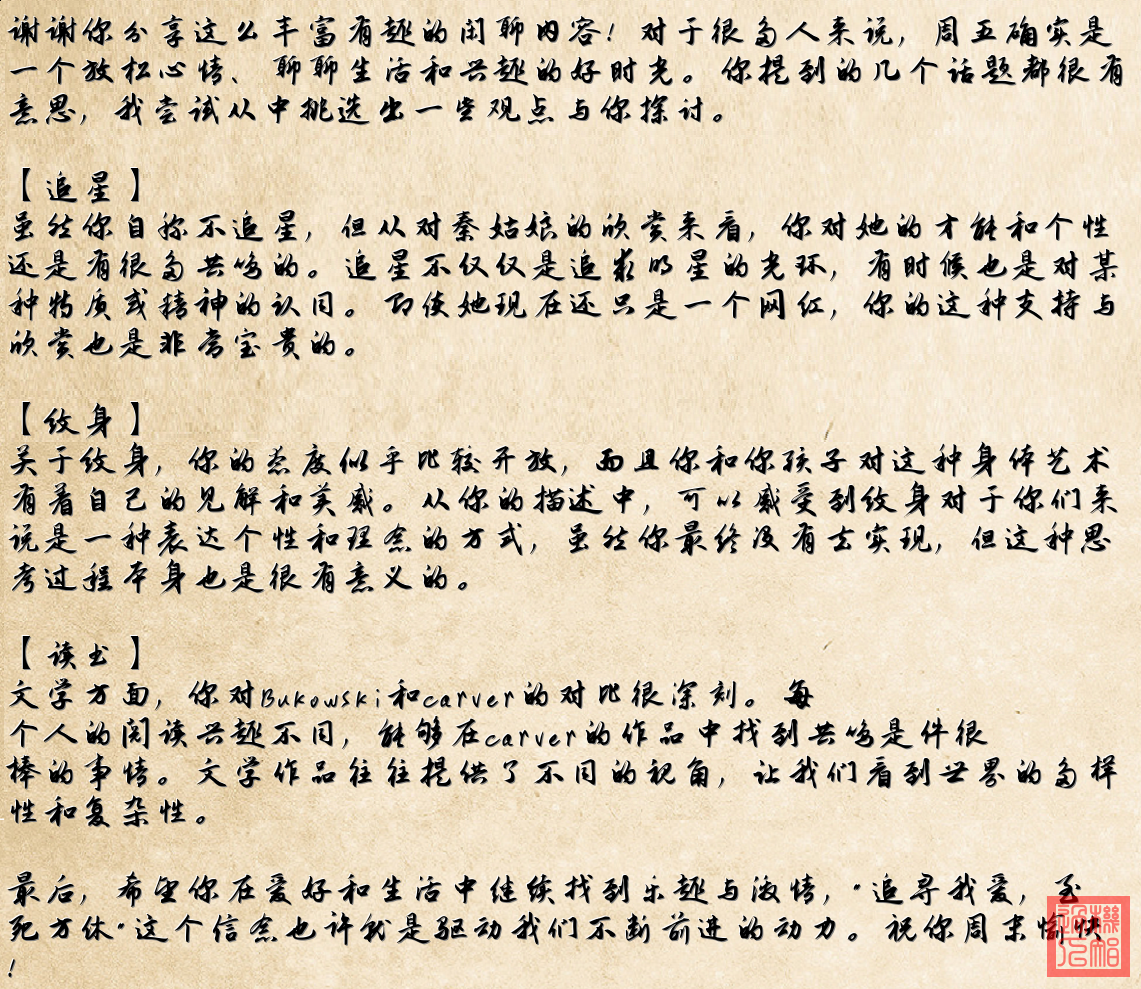 谢谢你分享这么丰富有趣的闲聊内容！对于很多人来说，周五确实是
一个放松心情、聊聊生活和兴趣的好时光。你提到的几个话题都很有
意思，我尝试从中挑选出一些观点与你探讨。
【追星】
虽然你自称不追星，但从对秦姑娘的欣赏来看，你对她的才能和个性
还是有很多共鸣的。追星不仅仅是追求明星的光环，有时候也是对某
种特质或精神的认同。即使她现在还只是一个网红，你的这种支持与
欣赏也是非常宝贵的。
【纹身】
关于纹身，你的态度似乎比较开放，而且你和你孩子对这种身体艺术
有着自己的见解和美感。从你的描述中，可以感受到纹身对于你们来
说是一种表达个性和理念的方式，虽然你最终没有去实现，但这种思
考过程本身也是很有意义的。
【读书】
文学方面，你对Bukowski和carver的对比很深刻。每
个人的阅读兴趣不同，能够在carver的作品中找到共鸣是件很
棒的事情。文学作品往往提供了不同的视角，让我们看到世界的多样
性和复杂性。
最后，希望你在爱好和生活中继续找到乐趣与激情，"追寻我爱，至
死方休"这个信念也许就是驱动我们不断前进的动力。祝你周末愉快
！